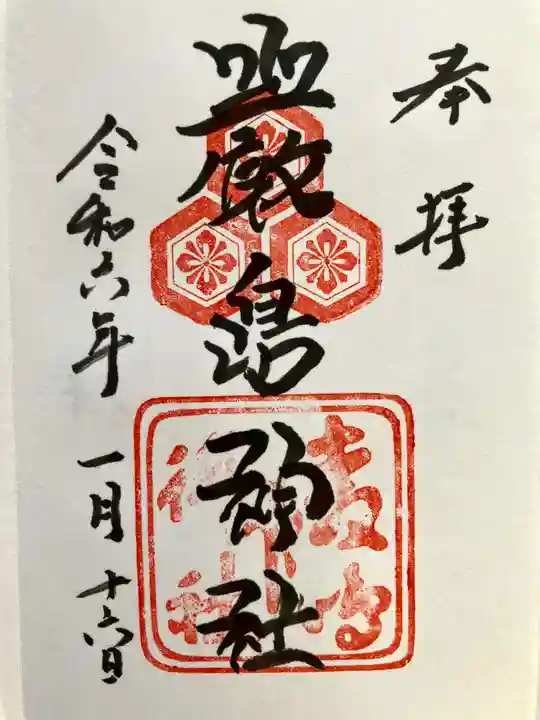 奉拝
嚴島神社
令和六年 一月 十六日